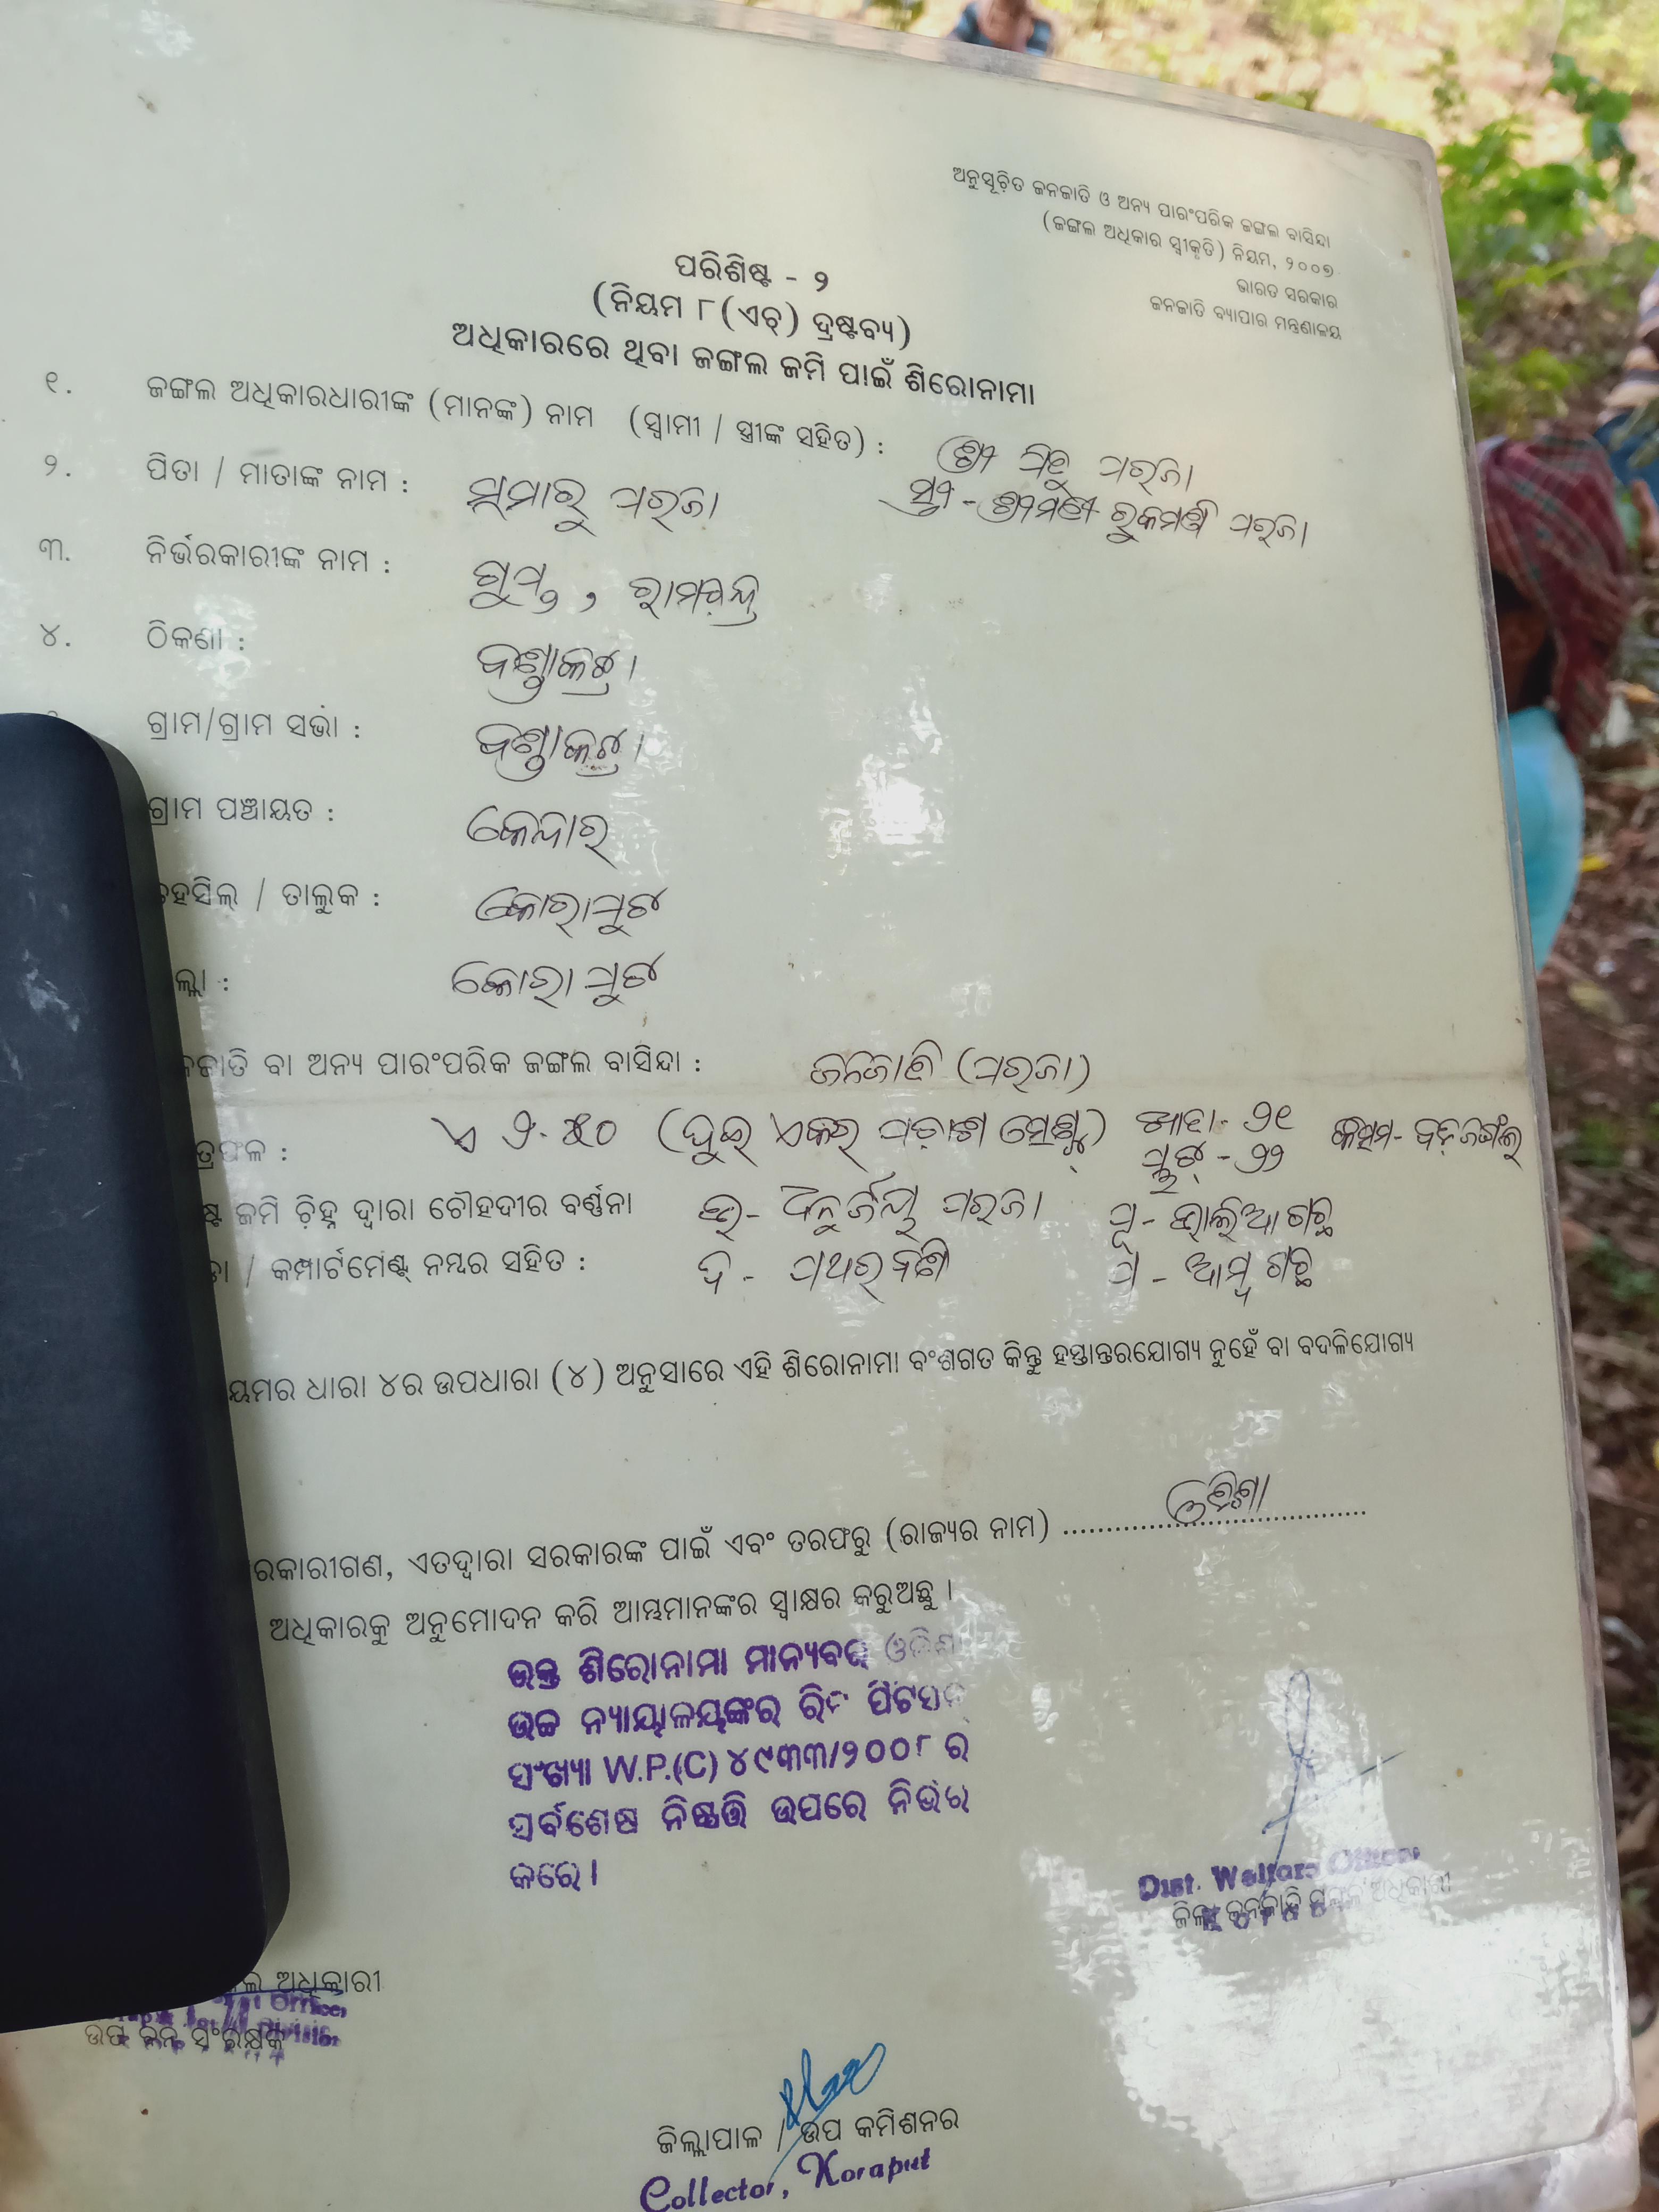 ଅନୁସୂଚିତ ଜନଜାତି ଓ ଅନ୍ୟ ପାରଂପରିକ ଜଙ୍ଗଲ ବାସିନ୍ଦା
(ଜଙ୍ଗଲ ଅଧିକାର ସ୍ୱୀକୃତି) ନିୟମ, ୨୦୦୭
ଭାରତ ସରକାର
ଜନଜାତି ବ୍ୟାପାର ମନ୍ତ୍ରଣାଳୟ
ପରିଶିଷ୍ଟ - ୨
(ନିୟମ ୮(ଏଚ୍) ଦ୍ରଷ୍ଟବ୍ୟ)
ଅଧିକାରରେ ଥିବା ଜଙ୍ଗଲ ଜମି ପାଇଁ ଶିରୋନାମା
୧. ଜଙ୍ଗଲ ଅଧିକାରଧାରୀଙ୍କ (ମାନଙ୍କ) ନାମ (ସ୍ୱାମୀ / ସ୍ତ୍ରୀଙ୍କ ସହିତ) : ଶ୍ରୀ ପରଜା
ସ୍ତ୍ରୀ - ଶ୍ରୀମତୀ ରୁକମଣି ପରଜା
୨. ପିତା / ମାତାଙ୍କ ନାମ : ପରଜା
୩. ନିର୍ଭରକାରୀଙ୍କ ନାମ : ରାମଚନ୍ଦ୍ର
୪. ଠିକଣା :
ଗ୍ରାମ/ଗ୍ରାମ ସଭା :
ଗ୍ରାମ ପଞ୍ଚାୟତ : କେନ୍ଦାର
ତହସିଲ୍ / ତାଲୁକ : କୋରାପୁଟ
ଲ୍ଲା : କୋରାପୁଟ
ଜାତି ବା ଅନ୍ୟ ପାରଂପରିକ ଜଙ୍ଗଲ ବାସିନ୍ଦା : ଜନଜାତି (ପରଜା)
ତ୍ରଫଳ : ଏ ୨.୫୦ (ଦୁଇ ଏକର ପଚାଶ ସେଣ୍ଟ୍) ଖାତା - ୨୧ କିସମ -
ପ୍ଲଟ୍ - ୨୨
ଷ୍ଟ ଜମି ଚିହ୍ନ ଦ୍ୱାରା ଚୌହଦୀର ବର୍ଣ୍ଣନା ଉ - ଧନୁର୍ଜୟ ପରଜା ପୂ - ଭାଲିଆ ଗଛ
/ କମ୍ପାର୍ଟମେଣ୍ଟ୍ ନମ୍ବର ସହିତ : ଦ - ପଥର ପ - ଆମ୍ବ ଗଛ
ୟମର ଧାରା ୪ର ଉପଧାରା (୪) ଅନୁସାରେ ଏହି ଶିରୋନାମା ବଂଶଗତ କିନ୍ତୁ ହସ୍ତାନ୍ତରଯୋଗ୍ୟ ନୁହେଁ ବା ବଦଳିଯୋଗ୍ୟ
ରକାରୀଗଣ, ଏତଦ୍ୱାରା ସରକାରଙ୍କ ପାଇଁ ଏବଂ ତରଫରୁ (ରାଜ୍ୟର ନାମ) ଓଡିଶା
ଅଧିକାରକୁ ଅନୁମୋଦନ କରି ଆମ୍ଭମାନଙ୍କର ସ୍ୱାକ୍ଷର କରୁଅଛୁ ।
ଉକ୍ତ ଶିରୋନାମା ମାନ୍ୟବର ଓଡିଶା
ଉଚ୍ଚ ନ୍ୟାୟାଳୟଙ୍କର ରିଟ ପିଟିସନ୍
ସଂଖ୍ୟା W.P.(C) ୪୯୩୩/୨୦୦୮ ର
ସର୍ବଶେଷ ନିଷ୍ପତ୍ତି ଉପରେ ନିର୍ଭର
କରେ ।
Dist. Welfare Officer
ଜିଲ୍ଲା ଜନଜାତି ମଙ୍ଗଳ ଅଧିକାରୀ
ଅଧିକାରୀ
ଉପ ବନ ସଂରକ୍ଷକ
ଜିଲ୍ଲାପାଳ / ଉପ କମିଶନର
Collector, Koraput